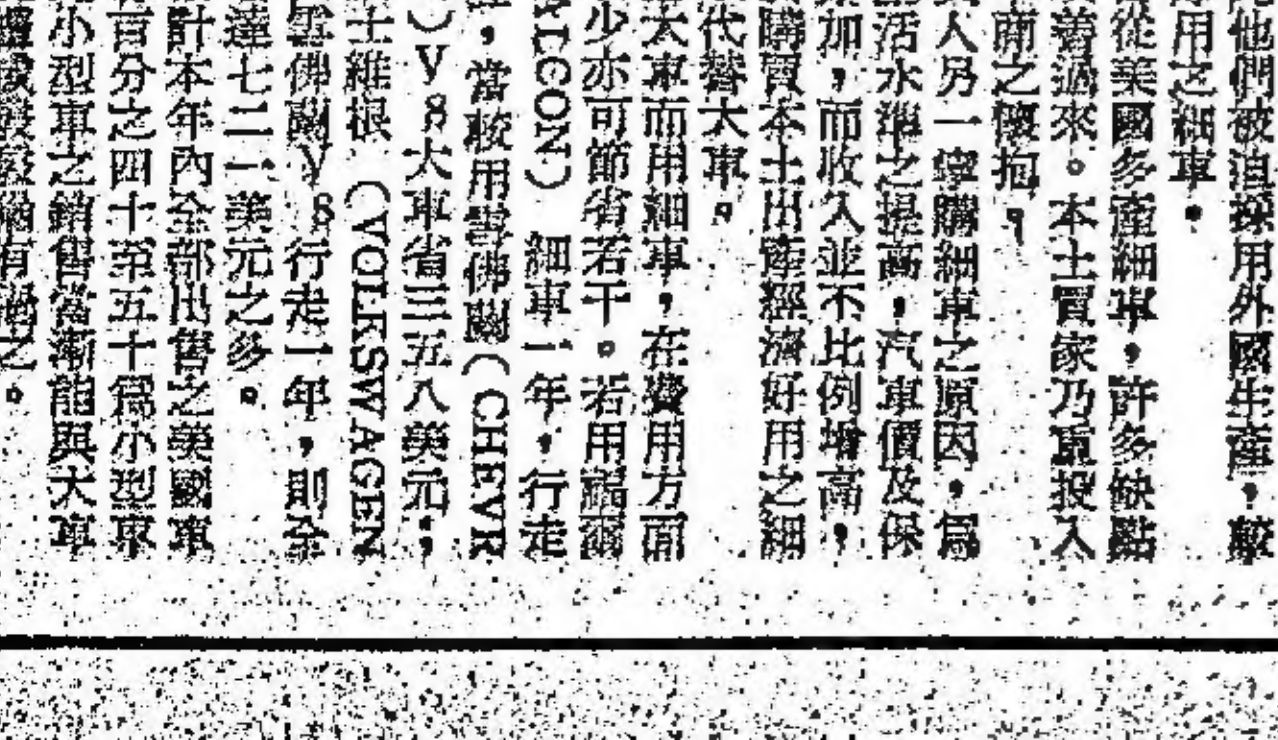 他們被迫採用外國生產，較
用之細車．
從美國多產細車，許多缺點
善過來。本土買家乃重投入
商之懷抱。
人另一寧購細車之原因，爲
活水準之提高，汽車價及保
加，而收入並不比例增高，
購買本土出產經濟好用之細
代替大車。
大車而用細車，在費用方面
少亦可節省若干。若用福爾
ALCON） 細車一年，行走
，當較用雪佛蘭（CHEVR
）V8大車省三五八美元；
士維根 （VOLKSWAGEN
雪佛蘭V8行走一年，則全
達七二一美元之多。
計本年內全部出售之美國車
百分之四十至五十爲小型車
小型車之銷售當漸能與大車
有過之。